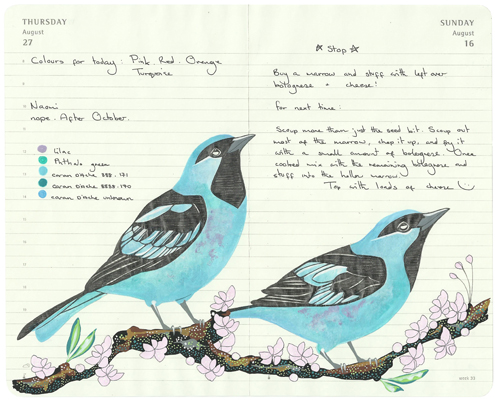 THURSDAY
August
27
Colours for today : Pink. Red. Orange
Turquoise
Naomi
nope. After October.
lilac
Pthalo green
caran d'ache 888.171
caran d'ache 8888.190
caran d'ache unknown
SUNDAY
August
16
☆ Stop ☆
Buy a marrow and stuff with left over
bolognese + cheese!
for next time:
Scoop more than just the seed bit. Scoop out
most of the marrow, chop it up, and fry it
with a small amount of bolognese. Once
cooked mix with the remaining bolognese and
stuff into the hollow marrow.
Top with loads of cheese